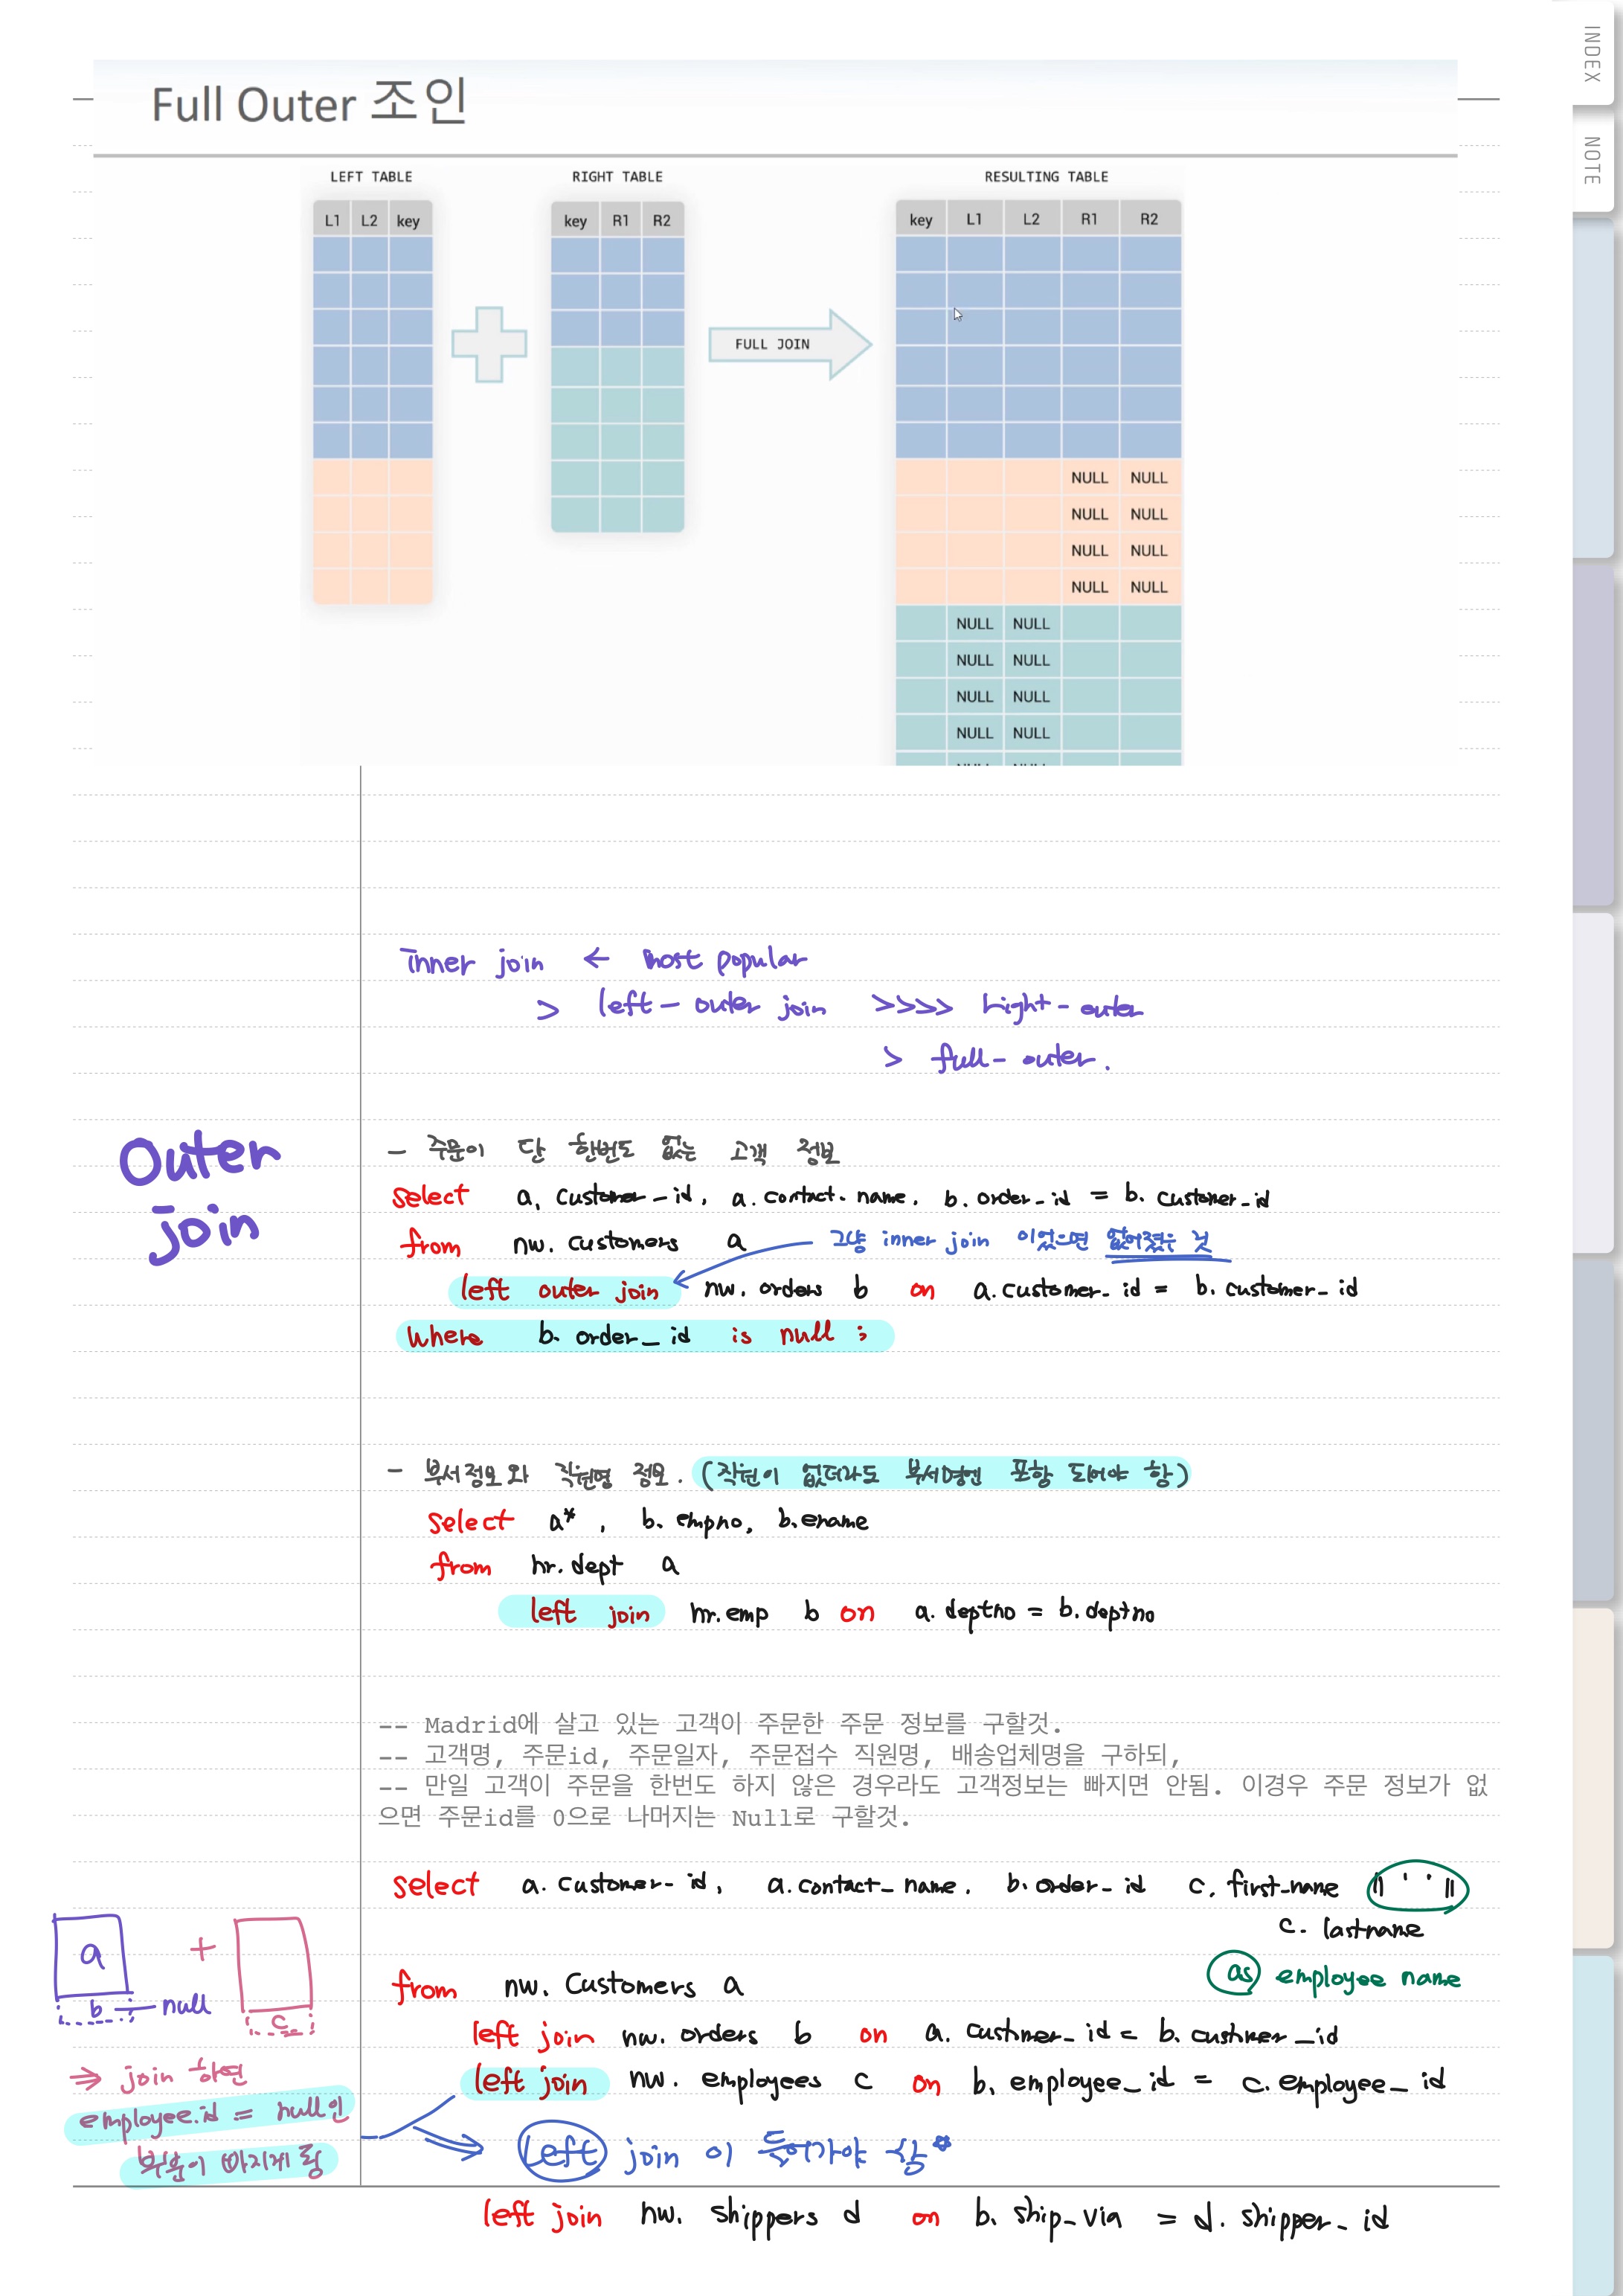 INDEX
NOTE
Full Outer 조인
LEFT TABLE
RIGHT TABLE
RESULTING TABLE
L1 L2 key
key R1 R2
key L1 L2 R1 R2
FULL JOIN
NULL NULL
NULL NULL
NULL NULL
NULL NULL
NULL NULL
NULL NULL
NULL NULL
NULL NULL
inner join ← most popular
> left - outer join >>>> right - outer
> full - outer.
Outer
join
- 주문이 단 한번도 없는 고객 정보
select a. customer_id, a. contact_name, b. order_id = b. customer_id
from nw. customers a
그냥 inner join 이었으면 없어졌을 것
left outer join nw. orders b on a.customer_id = b.customer_id
where b. order_id is null ;
- 부서정보와 직원명 정보. (직원이 없더라도 부서명엔 포함 되어야 함)
select a* , b. empno, b.ename
from hr.dept a
left join hr.emp b on a.deptno = b.deptno
-- Madrid에 살고 있는 고객이 주문한 주문 정보를 구할것.
-- 고객명, 주문id, 주문일자, 주문접수 직원명, 배송업체명을 구하되,
-- 만일 고객이 주문을 한번도 하지 않은 경우라도 고객정보는 빠지면 안됨. 이경우 주문 정보가 없
으면 주문id를 0으로 나머지는 Null로 구할것.
select a. customer_id, a.contact_name, b. order_id c. first_name || ' ' ||
c. lastname
as employee name
from nw. Customers a
left join nw. orders b on a. customer_id = b. customer_id
left join nw. employees c on b. employee_id = c. employee_id
left join 이 들어가야 함*
left join nw. shippers d on b. ship_via = d. shipper_id
a +
b null
c
⇒ join 하면
employee.id = null인
부분이 빠지게 됨